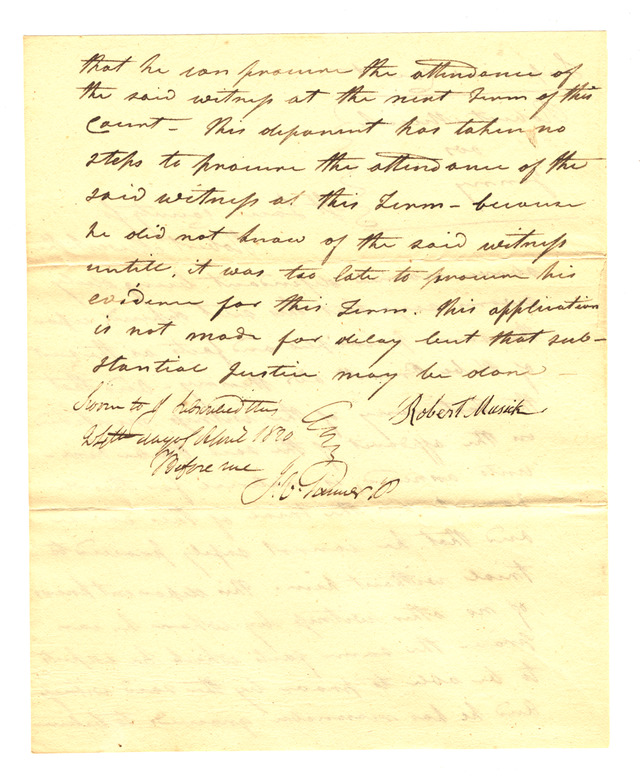 that he can procure the attendance of
the said witness at the next Term of this
Court - This deponent has taken no
steps to procure the attendance of the
said witness at this Term - because
he did not know of the said witness
untill, it was too late to procure his
evidence for this Term. This application
is not made for delay but that sub-
stantial Justice may be done -
Robert Musick
Sworn to & subscribed this
24th day of April 1820
Before me